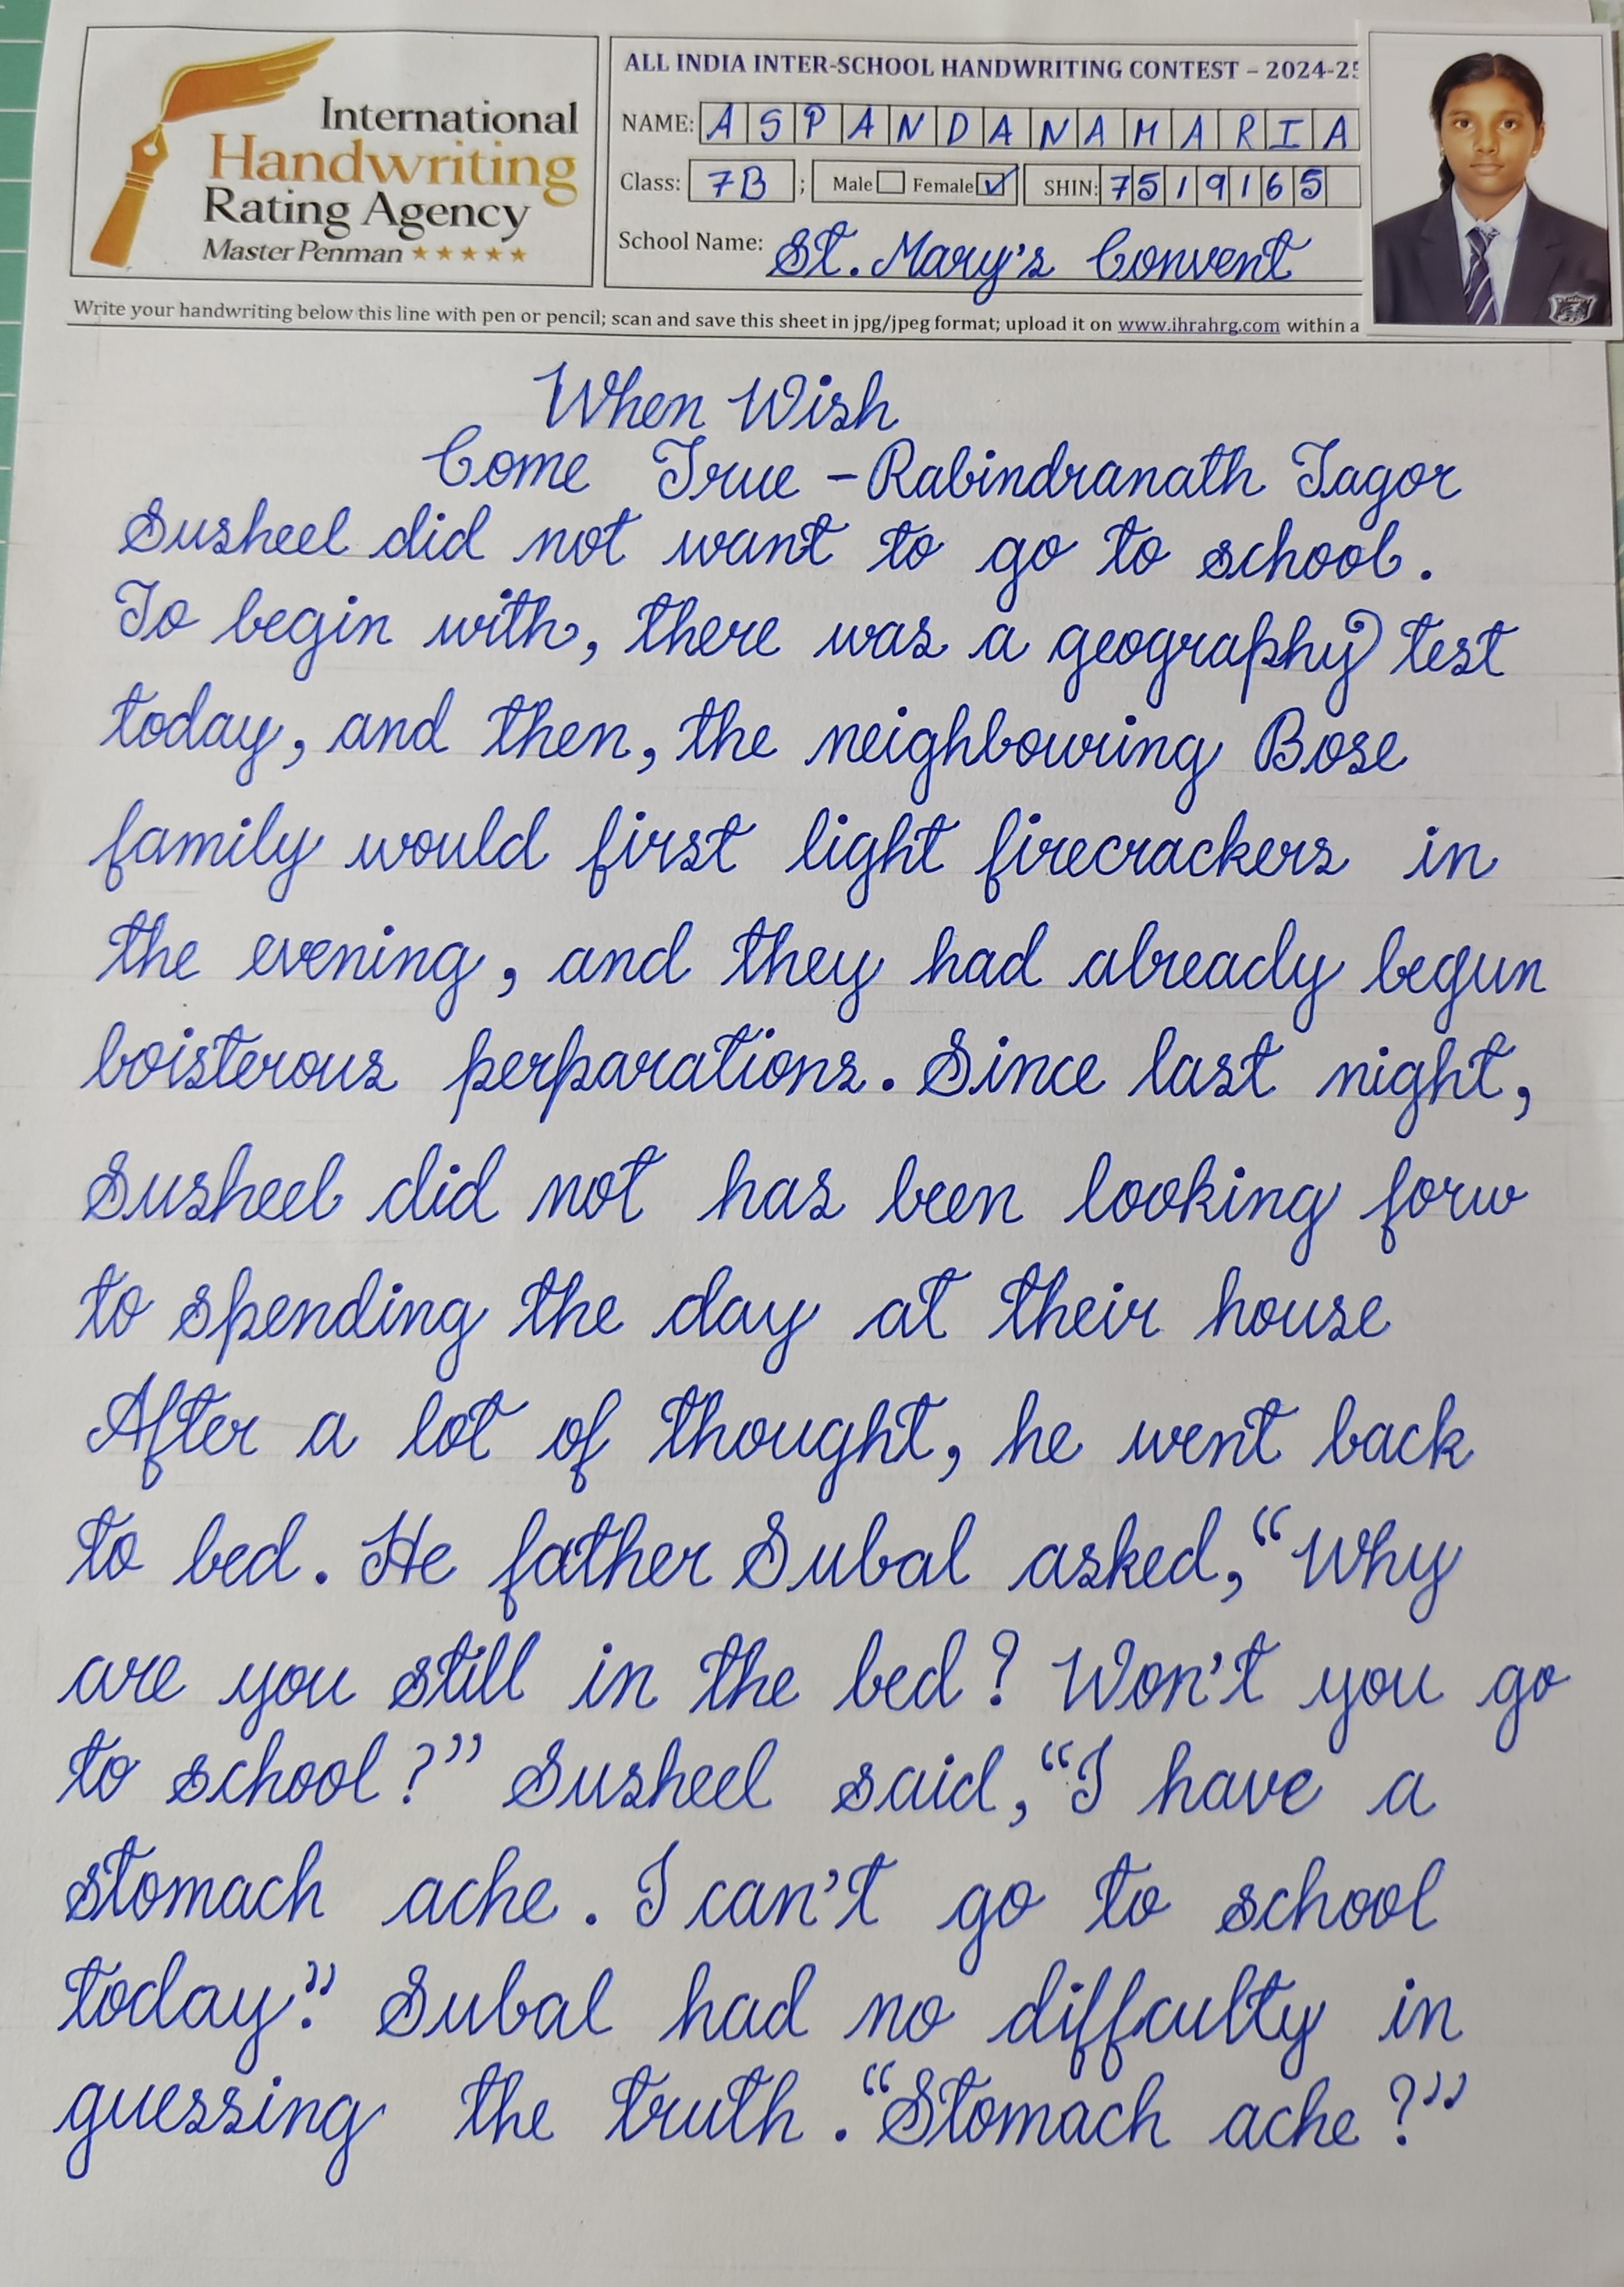 International
Handwriting
Rating Agency
Master Penman
ALL INDIA INTER-SCHOOL HANDWRITING CONTEST – 2024-25
NAME: A S P A N D A N A M A R I A
Class: 7B ; Male Female ✓ SHIN: 7519165
School Name: St. Mary's Convent
Write your handwriting below this line with pen or pencil; scan and save this sheet in jpg/jpeg format; upload it on www.ihrahrg.com within a
When Wish
Come True – Rabindranath Tagor
Susheel did not want to go to school.
To begin with, there was a geography test
today, and then, the neighbouring Bose
family would first light firecrackers in
the evening, and they had already begun
boisterous perparations. Since last night,
Susheel did not has been looking forw
to spending the day at their house
After a lot of thought, he went back
to bed. He father Subal asked, “Why
are you still in the bed? Won't you go
to school?” Susheel said, “I have a
stomach ache. I can't go to school
today.” Subal had no diffaulty in
guessing the truth. “Stomach ache?”